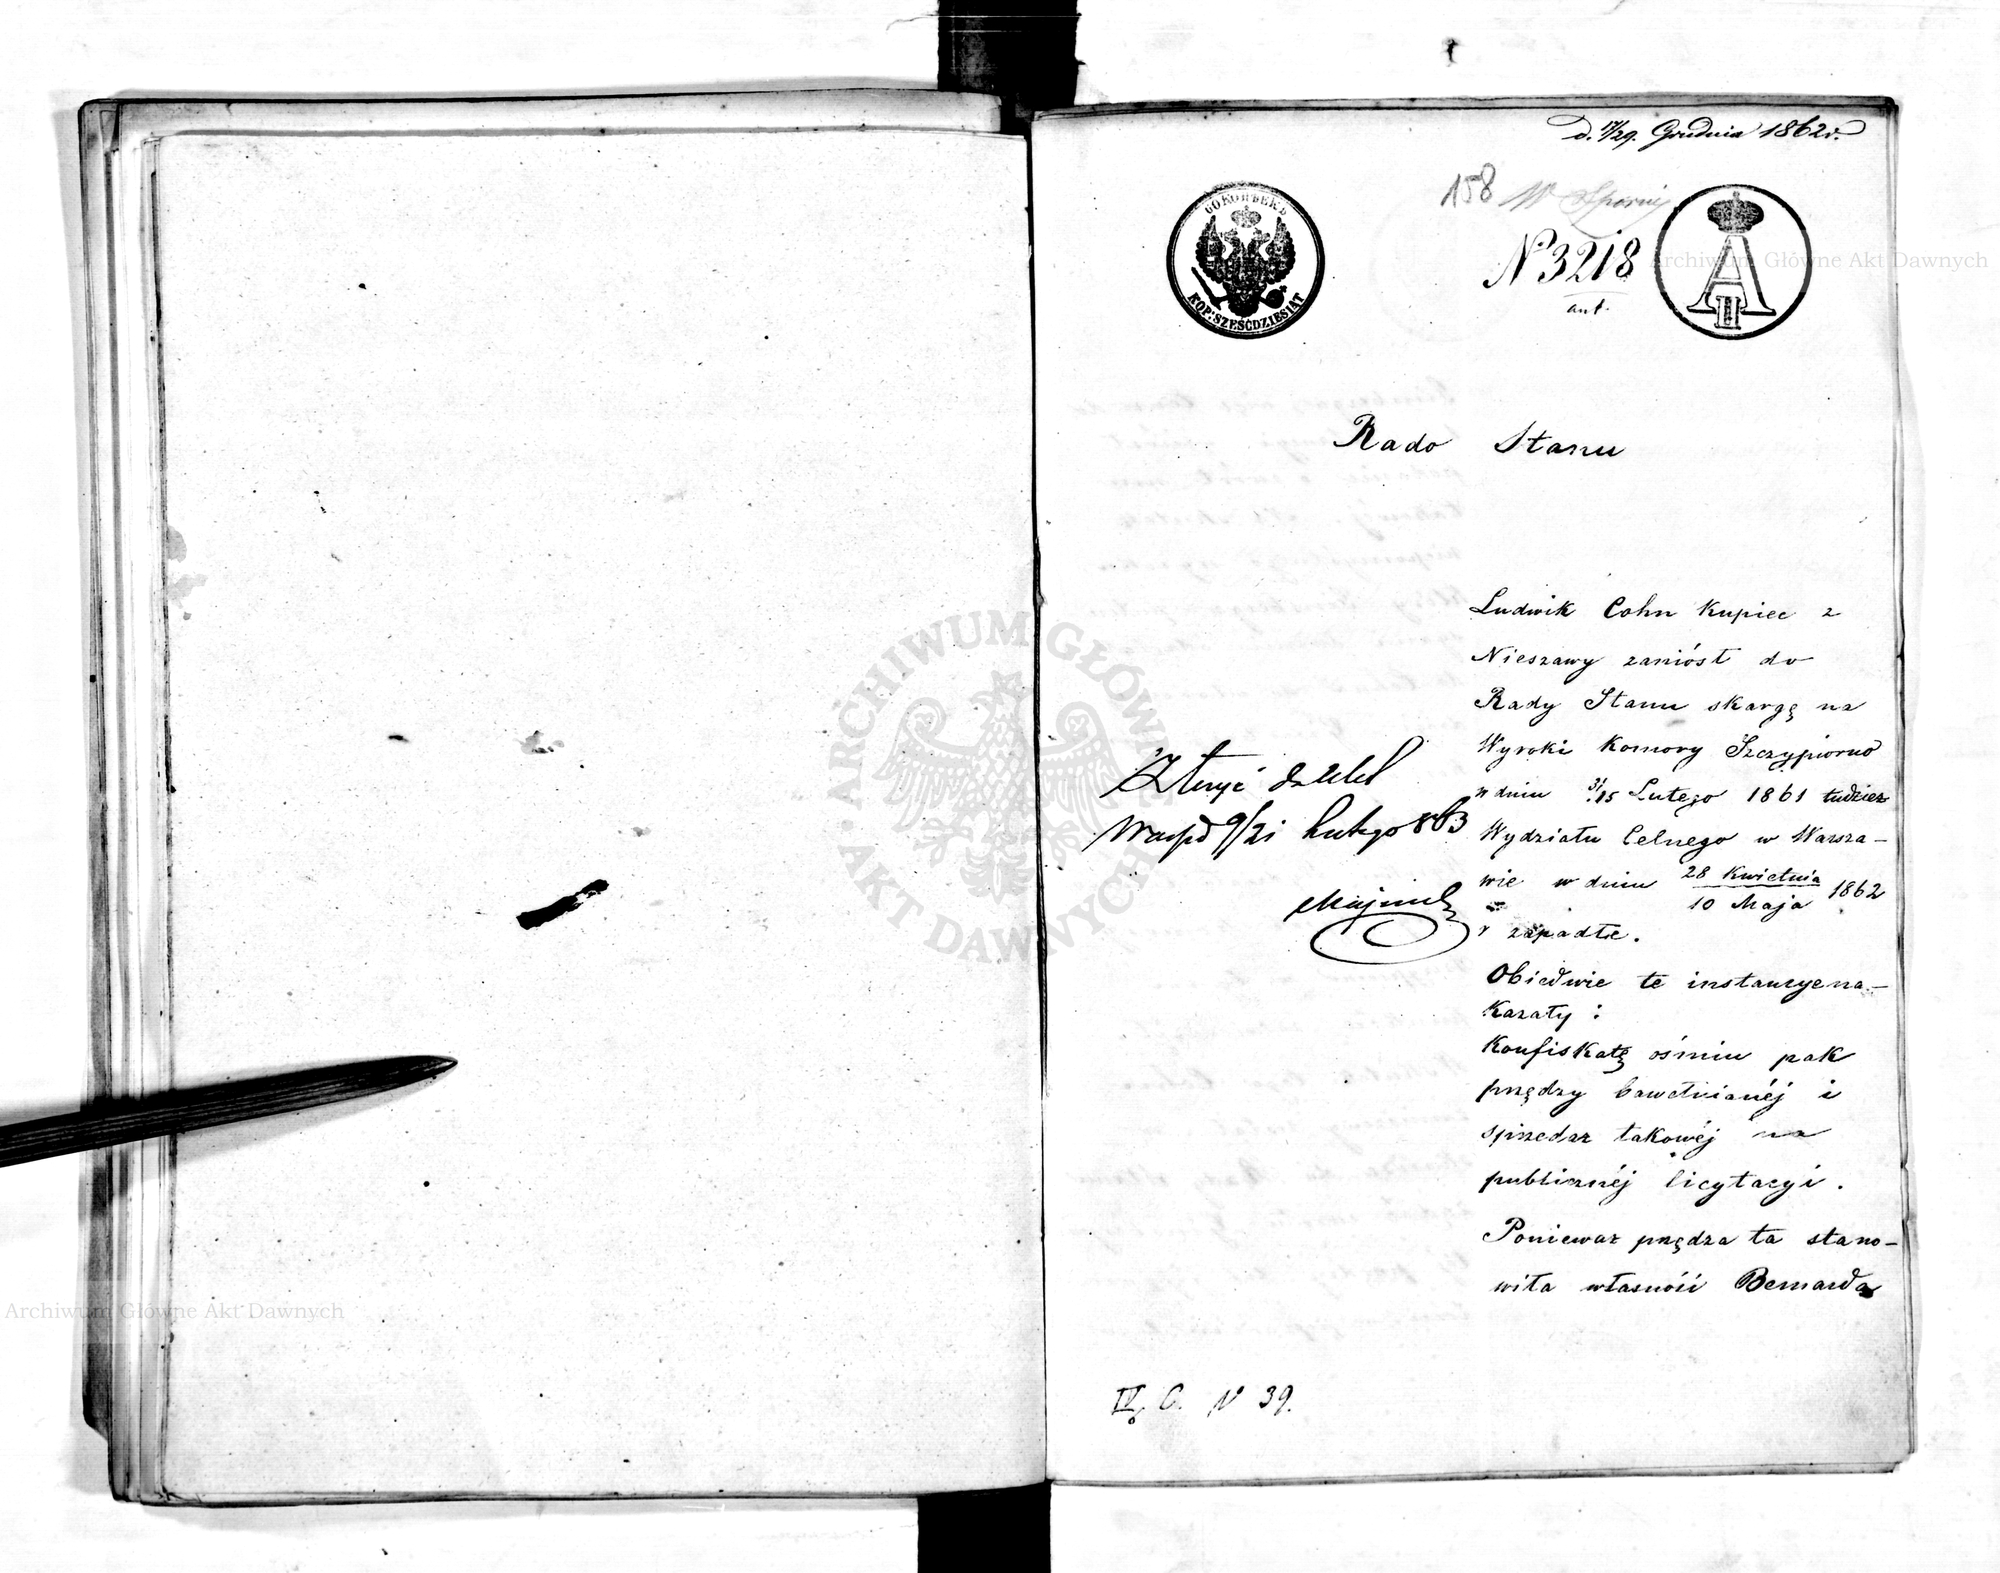 d. 17/29. Grudnia 1862 r.
158 W Sporny
60 КОПѢЕКЪ
KOP: SZEŚĆDZIESIĄT
N 3218
ant.
A II
Rado Stanu
Ludwik Cohn Kupiec z
Nieszawy zaniósł do
Rady Stanu skargę na
Wyroki Komory Szczypiorno
w dniu 3/15 Lutego 1861 tudzież
Wydziału Celnego w Warsza-
wie w dniu 28 Kwietnia
10 Maja 1862
r zapadłe.
Obiedwie te instancye na-
kazały:
Konfiskatę ośmiu pak
przędzy bawełnianéj i
sprzedaż takowéj na
publicznéj licytacyi.
Ponieważ przędza ta stano-
wiła własność Bernarda
Złożyć
9/21 Lutego 863
IV. C. N 39.
Archiwum Główne Akt Dawnych
Archiwum Główne Akt Dawnych
ARCHIWUM GŁÓWNE AKT DAWNYCH